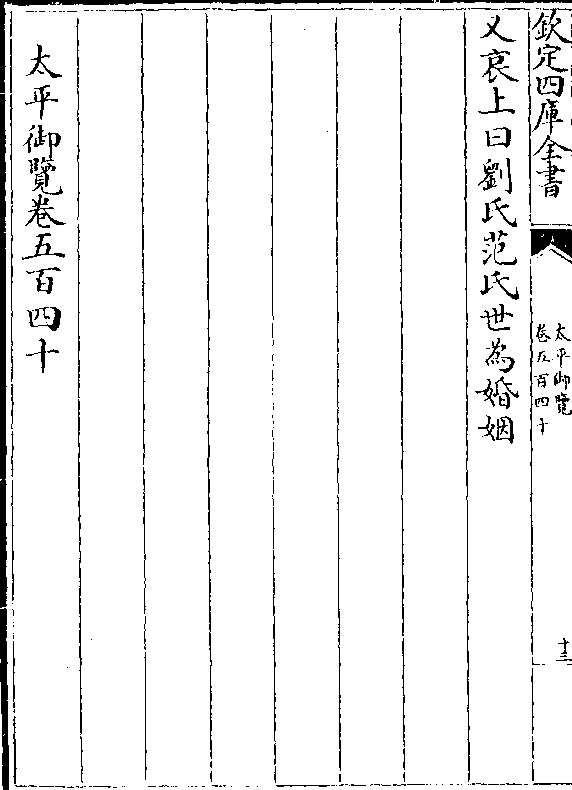 欽定四庫全書
太平御覽
卷五百四十
十三
又哀上曰劉氏范氏世為婚姻
太平御覽卷五百四十